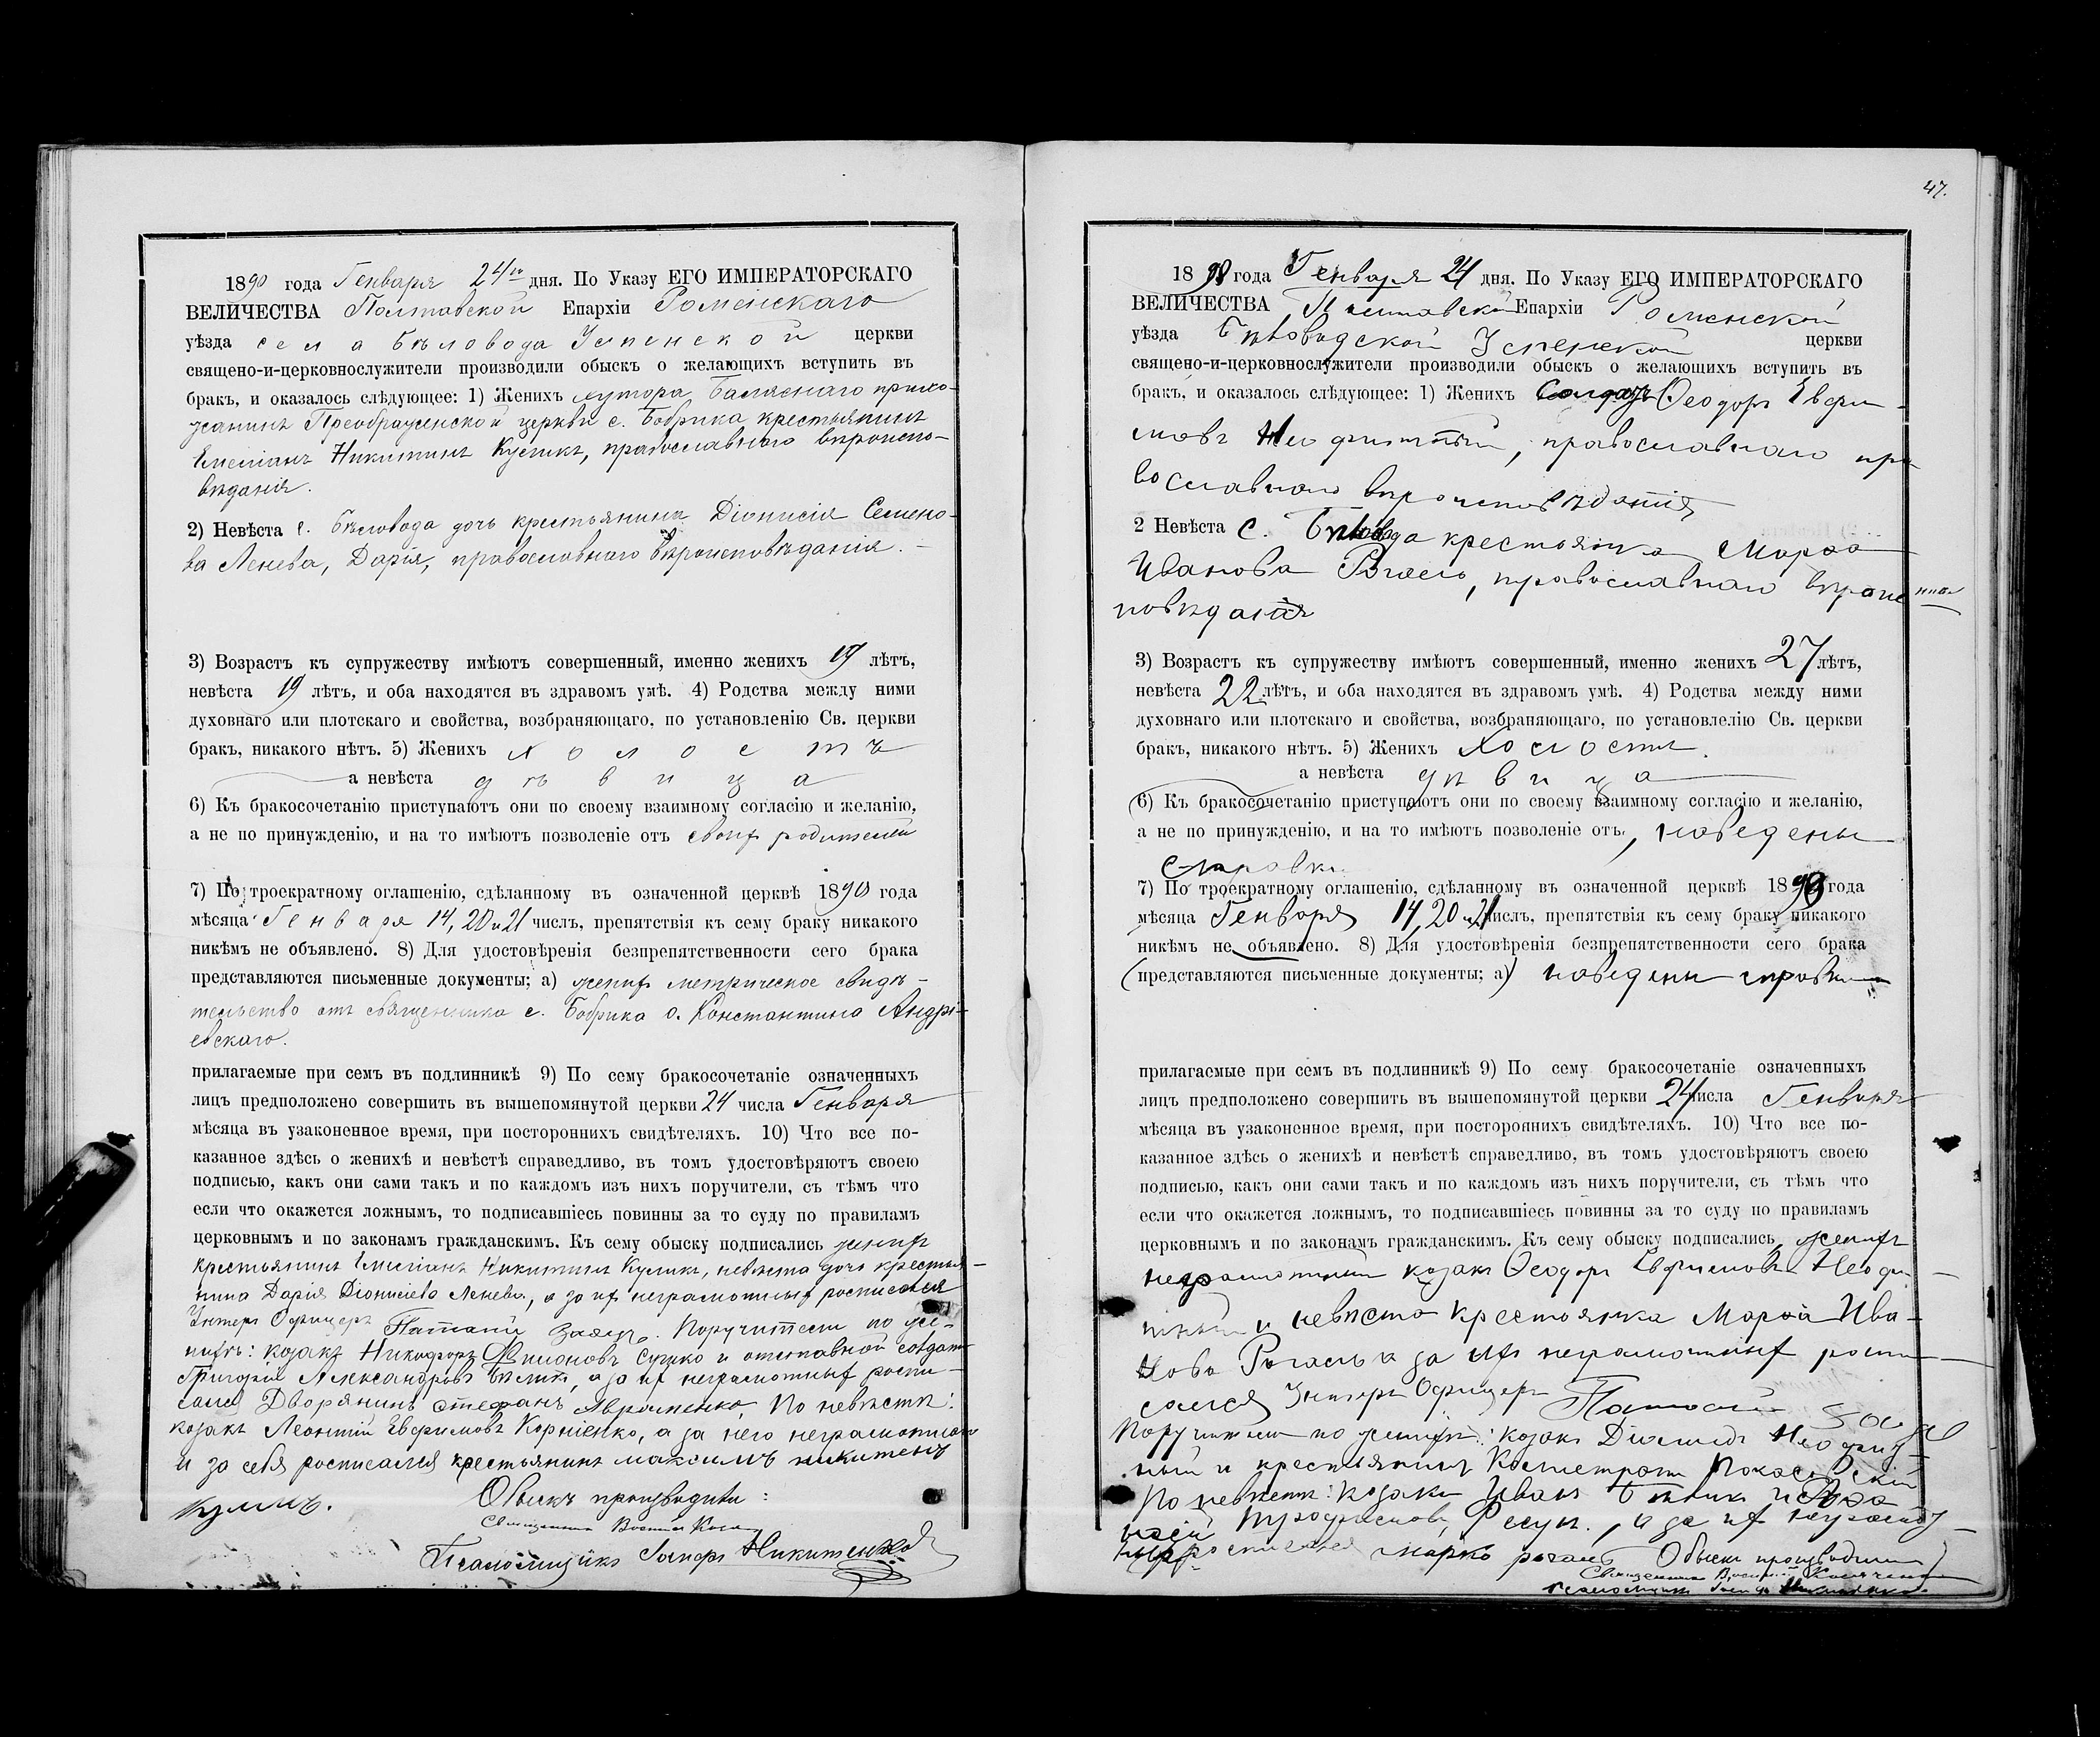 1890 года Генваря 24го дня. По Указу ЕГО ИМПЕРАТОРСКАГО
ВЕЛИЧЕСТВА Полтавской Епархіи Роменскаго
уѣзда села Бѣловода Успенской церкви
священо-и-церковнослужители производили обыскъ о желающихъ вступить въ
бракъ, и оказалось слѣдующее: 1) Женихъ хутора прихо-
жанинъ Преображенской церкви с. Бобрика крестьянинъ
Емеліанъ Никитинъ Куликъ, православнаго вѣроиспо-
вѣданія.
2) Невѣста с. Бѣловода дочь крестьянина Діонисія Семено-
ва Ленева, Дарія, православнаго вѣроисповѣданія. –
3) Возрастъ къ супружеству имѣютъ совершенный, именно женихъ 19 лѣтъ,
невѣста 19 лѣтъ, и оба находятся въ здравомъ умѣ. 4) Родства между ними
духовнаго или плотскаго и свойства, возбраняющаго, по установленію Св. церкви
бракъ, никакого нѣтъ. 5) Женихъ холостъ
а невѣста дѣвица
6) Къ бракосочетанію приступаютъ они по своему взаимному согласію и желанію,
а не по принужденію, и на то имѣютъ позволеніе отъ своихъ родителей
7) По троекратному оглашенію, сдѣланному въ означенной церквѣ 1890 года
мѣсяца Генваря 14, 20 и 21 числъ, препятствія къ сему браку никакого
никѣмъ не объявлено. 8) Для удостовѣренія безпрепятственности сего брака
представляются письменные документы; а) жених метрическое свидѣ-
тельство отъ священника с. Бобрика о. Константина Андрі-
евскаго.
прилагаемые при семъ въ подлинникѣ 9) По сему бракосочетаніе означенныхъ
лицъ предположено совершить въ вышепомянутой церкви 24 числа Генваря
мѣсяца въ узаконенное время, при постороннихъ свидѣтеляхъ. 10) Что все по-
казанное здѣсь о женихѣ и невѣстѣ справедливо, въ томъ удостовѣряютъ своею
подписью, какъ они сами такъ и по каждомъ изъ нихъ поручители, съ тѣмъ что
если что окажется ложнымъ, то подписавшіесь повинны за то суду по правиламъ
церковнымъ и по законамъ гражданскимъ. Къ сему обыску подписались женихъ
крестьянинъ Емеліанъ Никитинъ Куликъ, невѣста дочь крестья-
нина Дарія Діонисіева Ленева, а за ихъ неграмотныхъ росписался
Унтеръ Офицеръ Поручители по же-
нихѣ: козакъ Никифоръ Филоновъ Сушко и отставной солдатъ
Григорій Александровъ а за ихъ неграмотныхъ роспи-
сался Дворянинъ стефанъ Авраменко, По невѣстѣ:
козакъ Леонтій Евфимовъ Корніенко, а за него неграмотнаго
и за себя росписался крестьянинъ максимъ никитенъ
куликъ.
Обыскъ производили:
Священникъ Василій
Псаломщикъ Іосифъ Никитенко
47.
1890 года Генваря 24 дня. По Указу ЕГО ИМПЕРАТОРСКАГО
ВЕЛИЧЕСТВА Полтавской Епархіи Роменской
уѣзда Бѣловодской Успенской церкви
священо-и-церковнослужители производили обыскъ о желающихъ вступить въ
бракъ, и оказалось слѣдующее: 1) Женихъ Солдатъ Ѳеодоръ Евфи-
мовъ православнаго пра
вославнаго вѣроисповѣданія
2 Невѣста с. Бѣловода крестьянка Марѳа
Иванова Рогаль, православнаго вѣроис
повѣданія
3) Возрастъ къ супружеству имѣютъ совершенный, именно женихъ 27 лѣтъ,
невѣста 22 лѣтъ, и оба находятся въ здравомъ умѣ. 4) Родства между ними
духовнаго или плотскаго и свойства, возбраняющаго, по установлелію Св. церкви
бракъ, никакого нѣтъ. 5) Женихъ Холостъ.
а невѣста дѣвица
6) Къ бракосочетанію приступаютъ они по своему взаимному согласію и желанію,
а не по принужденію, и на то имѣютъ позволеніе отъ, наведены
справки
7) По троекратному оглашенію, сдѣланному въ означенной церквѣ 1890 года
мѣсяца Генваря 14, 20 и 21 числъ, препятствія къ сему браку никакого
никѣмъ не объявлено. 8) Для удостовѣренія безпрепятственности сего брака
(представляются письменные документы; а) наведены справки
прилагаемые при семъ въ подлинникѣ 9) По сему бракосочетаніе означенныхъ
лицъ предположено совершить въ вышепомянутой церкви 24 числа Генваря
мѣсяца въ узаконенное время, при постороннихъ свидѣтеляхъ. 10) Что все по-
казанное здѣсь о женихѣ и невѣстѣ справедливо, въ томъ удостовѣряютъ своею
подписью, какъ они сами такъ и по каждомъ изъ нихъ поручители, съ тѣмъ что
если что окажется ложнымъ, то подписавшіесь повинны за то суду по правиламъ
церковнымъ и по законамъ гражданскимъ. Къ сему обыску подписались, женихъ
неграмотный козакъ Ѳеодоръ Евфимовъ
и невѣста крестьянка Марѳа Ива-
нова Рогаль а за ихъ неграмотныхъ роспи-
сался Унтеръ Офицеръ
Поручители по женихѣ: козакъ
и крестьянинъ
По невѣстѣ: козаки Иванъ
Трофимовъ а за ихъ
росписался марко рогаль Обыскъ производили
Священникъ Василій
Псаломщикъ Іосифъ Никитенко